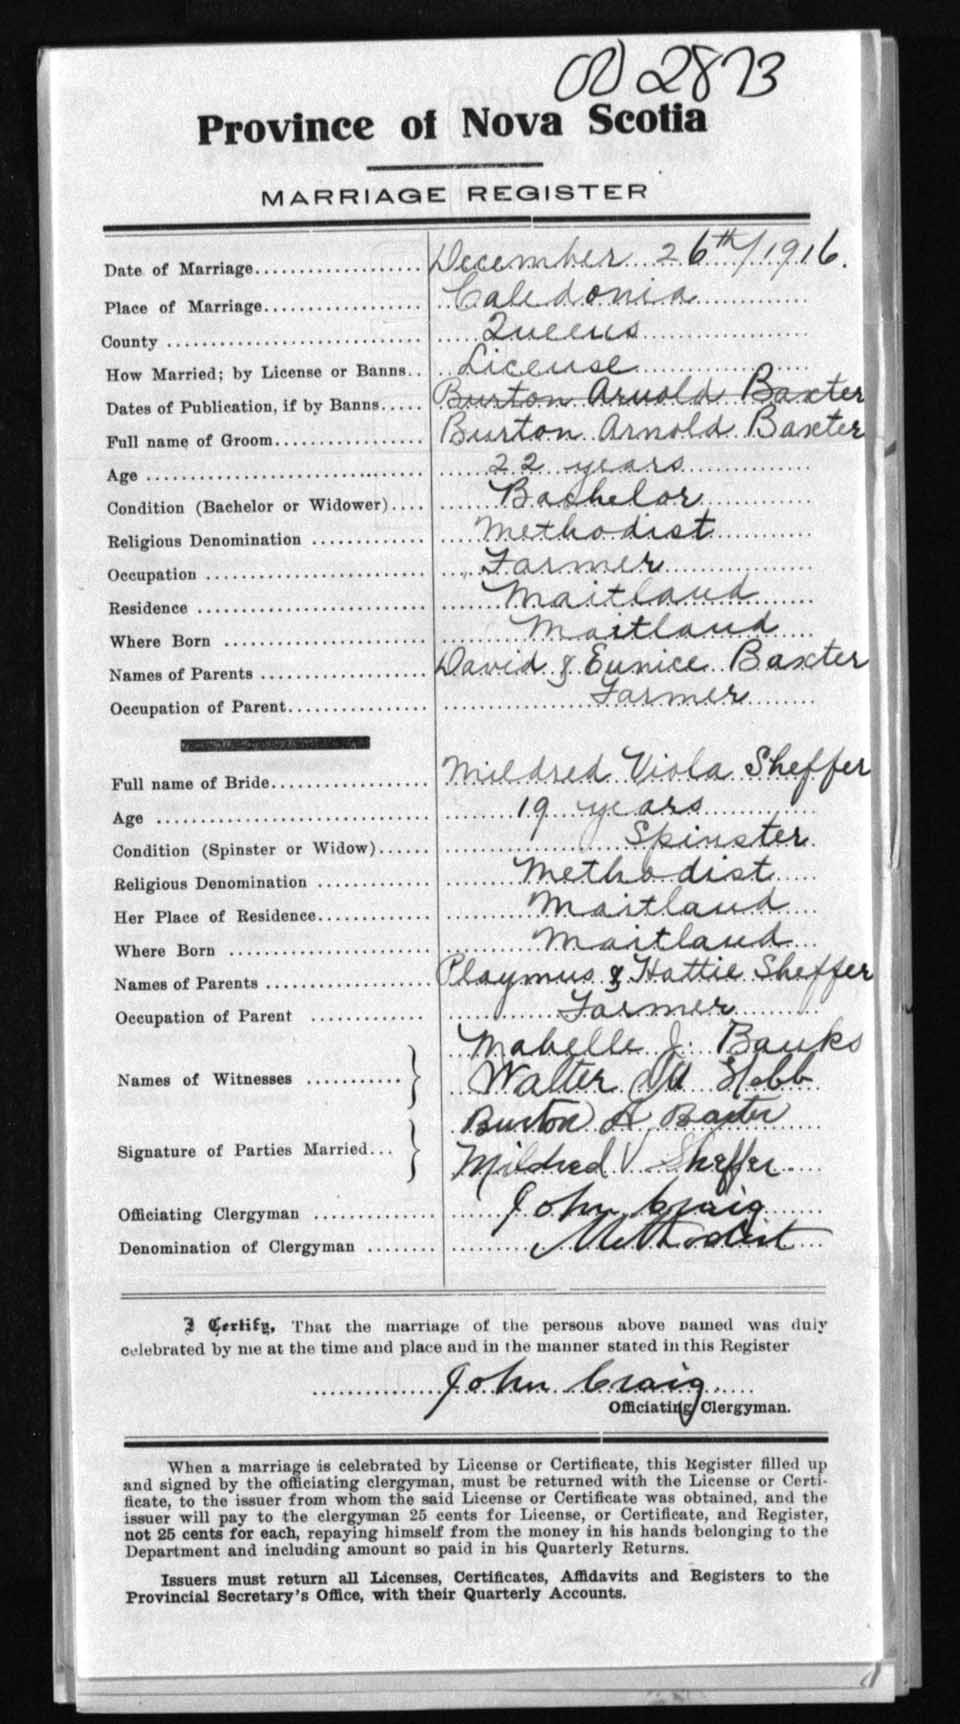 2873
Province of Nova Scotia
MARRIAGE REGISTER
Date of Marriage.................... December 26th/1916.
Place of Marriage................... Caledonia
County ............................ Queens
How Married; by License or Banns.. License
Dates of Publication, if by Banns..... Burton Arnold Baxter
Full name of Groom................. Burton Arnold Baxter
Age ............................... 22 years
Condition (Bachelor or Widower).... Bachelor
Religious Denomination ............ Methodist
Occupation ........................ Farmer
Residence ......................... Maitland
Where Born ...................... Maitland
Names of Parents .................. David & Eunice Baxter
Occupation of Parent............... Farmer
Full name of Bride................. Mildred Viola Sheffer
Age .............................. 19 years
Condition (Spinster or Widow)...... Spinster
Religious Denomination ............ Methodist
Her Place of Residence............. Maitland
Where Born ...................... Maitland
Names of Parents .................. Playmus & Hattie Sheffer
Occupation of Parent ............. Farmer
Mabelle J. Banks
Names of Witnesses ...........
Walter
Burton A Baxter
Signature of Parties Married...
Mildred V Sheffer
Officiating Clergyman .............. John Craig
Denomination of Clergyman ........ Methodist
I Certify, That the marriage of the persons above named was duly
celebrated by me at the time and place and in the manner stated in this Register
John Craig
Officiating Clergyman.
When a marriage is celebrated by License or Certificate, this Register filled up
and signed by the officiating clergyman, must be returned with the License or Certi-
ficate, to the issuer from whom the said License or Certificate was obtained, and the
issuer will pay to the clergyman 25 cents for License, or Certificate, and Register,
not 25 cents for each, repaying himself from the money in his hands belonging to the
Department and including amount so paid in his Quarterly Returns.
Issuers must return all Licenses, Certificates, Affidavits and Registers to the
Provincial Secretary's Office, with their Quarterly Accounts.